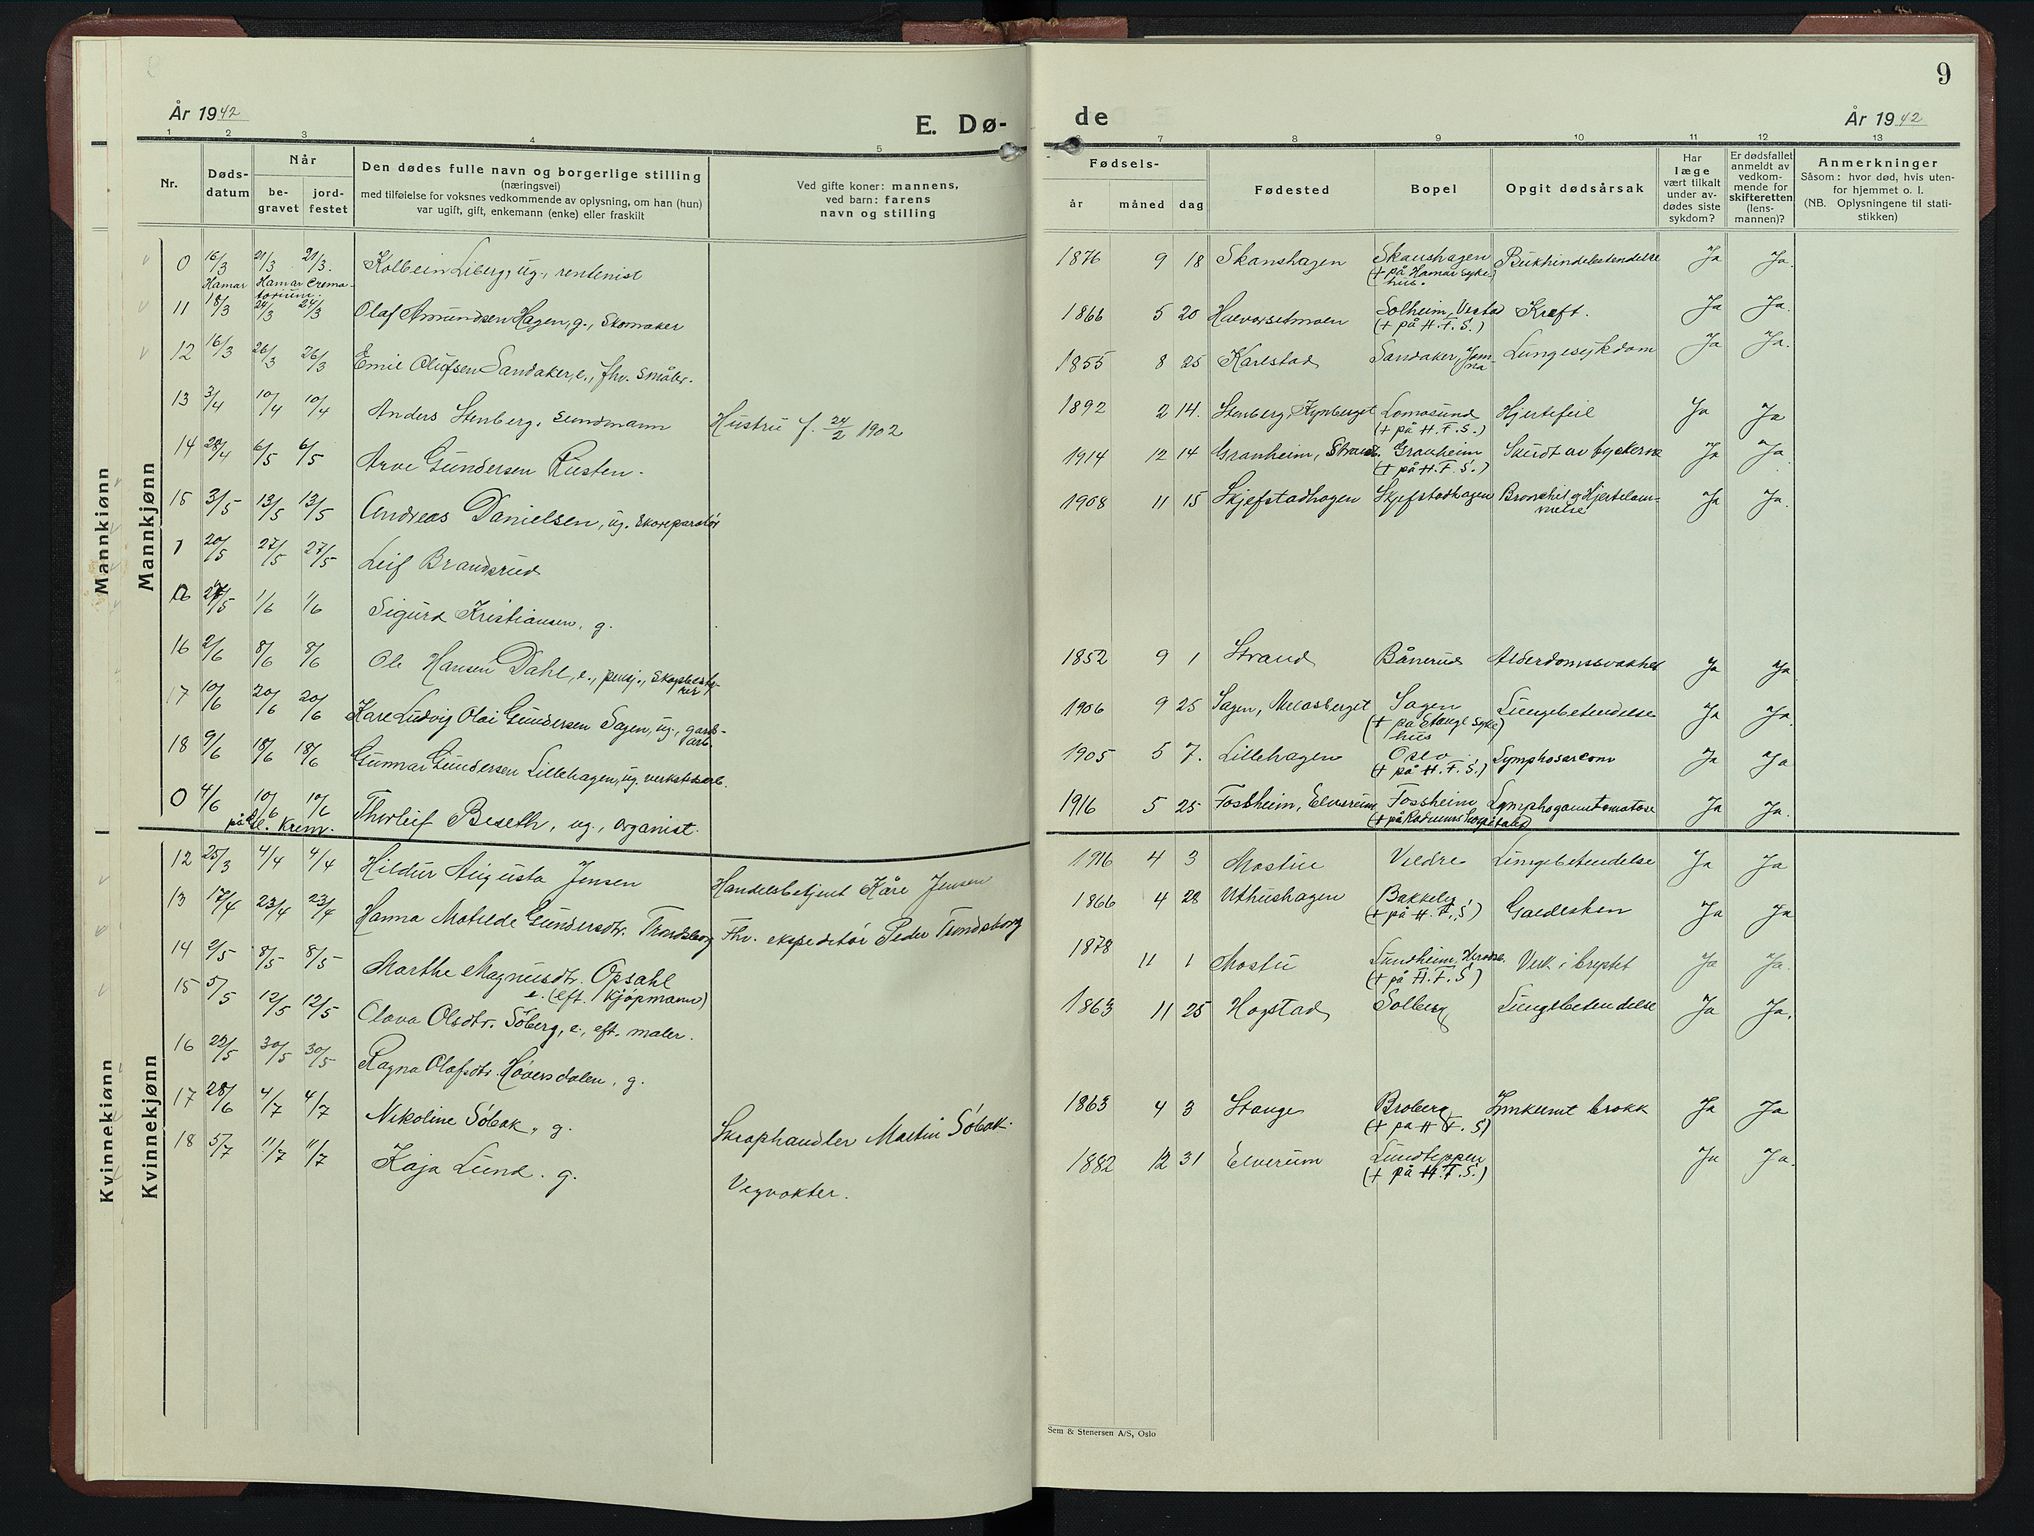 9
År 1942
E. Dø-
de
År 1942
1 2 3 4 5
6 7 8 9 10 11 12 13
Nr.
Døds-
datum
Når
be-
gravet
jord-
festet
Den dødes fulle navn og borgerlige stilling
(næringsvei)
med tilføielse for voksnes vedkommende av oplysning, om han (hun)
var ugift, gift, enkemann (enke) eller fraskilt
Ved gifte koner: mannens,
ved barn: farens
navn og stilling
Fødsels-
år måned dag
Fødested
Bopel
Opgit dødsårsak
Har
læge
vært tilkalt
under av-
dødes siste
sykdom?
Er dødsfallet
anmeldt av
vedkom-
mende for
skifteretten
(lens-
mannen)?
Anmerkninger
Såsom: hvor død, hvis uten-
for hjemmet o. l.
(NB. Oplysningene til stati-
stikken)
Mannkjønn
Mannkjønn
0 16/3 21/3 21/3. Kolbein Liberg, ug., rentenist 1876 9 18 Skanshagen Skanshagen Bukhindebetendelse Ja Ja.
Hamar Hamar Crema-
torium.
(+ på Hamar syke-
hus.
11 18/3 24/3 24/3 Olaf Amundsen Hagen, g., Skomaker 1866 5 20 Halvorsetmoen Solheim, Vestad Kræft. Ja Ja.
(+ på H. F. S.)
12 16/3 26/3 26/3 Emil Olufsen Sandaker, e., fhv. småbr. 1855 8 25 Karlstad Sandaker, Jøm-
na
Lungesykdom Ja Ja.
13 3/4 10/4 10/4 Anders Stenberg, Hustru f. 24/2 1902 1892 2 14. Stenberg, Kynberget Lomosund Hjertefeil Ja Ja
(+ på H. F. S.)
14 28/4 6/5 6/5 Arve Gundersen Rusten. 1914 12 14 Granheim, Strand. Granheim Skudt av tyskerne Ja Ja
(+ på H. F. S.)
15 3/5 13/5 13/5 Andreas Danielsen, ug. Skoreparatør 1908 11 15 Skjefstadhagen Skjefstadhagen Bronchit og Hjertelam-
melse
Ja Ja.
20/5 27/5 27/5 Leif Brandsrud
27/5 1/6 1/6 Sigurd Kristiansen, g.
16 2/6 8/6 8/6 Ole Hansen Dahl, e., pensj., 1852 9 1 Strand Bånerud Alderdomssvakhet Ja Ja.
17 10/6 20/6 20/6 Kåre Ludvig Olai Gundersen Sagen, ug., gards-
arb.
1906 9 25 Sagen, Melåsberget Sagen Lungebetendelse Ja Ja.
(+ på Stange syke
hus
18 9/6 18/6 18/6 Gunnar Gundersen Lillehagen, ug. 1905 5 7. Lillehagen Oslo Lymphosarcom Ja Ja
(+ på H. F. S.)
0 4/6 10/6 10/6 Thorleif Beseth, ug., organist. 1916 5 25 Fossheim, Elverum Fossheim Ja Ja.
Krem.
(+ på Radiumshospitalet)
Kvinnekjønn
Kvinnekjønn
12 25/3 4/4 4/4 Hildur Augusta Jensen Handelsbetjent Kåre Jensen 1916 4 3 Mostue Veldre Lungebetendelse Ja Ja
13 17/4 23/4 23/4 Hanna Matilde Gundersdtr. Trondsborg Fhv. ekspeditør Peder Trondsborg 1866 4 28 Uthushagen Bakkely Galdesten Ja Ja
(+ på H. F. S)
14 2/5 8/5 8/5 Marthe Magnusdtr. Opsahl 1878 11 1 Mostu Sundheim, Verk i brystet Ja Ja.
e. (eft. Kjøpmann)
(+ på H. F. S)
15 5/5 12/5 12/5 Olava Olsdtr. Søberg, e., eft. maler. 1863 11 25 Hogstad Solberg Lungebetendelse Ja Ja.
16 22/5 30/5 30/5 Ragna Olafsdtr. Høiersdalen, g.
17 28/6 4/7 4/7 Nikoline Søbak, g. Skraphandler Martin Søbak. 1863 4 3 Stange Broberg Innklemt brokk Ja Ja
(+ på H. F. S)
18 5/7 11/7 11/7 Kaja Lund. g. Vegvokter. 1882 12 31 Elverum Lundteppen Ja Ja.
(+ på H. F. S.)
Sem & Stenersen A/S, Oslo